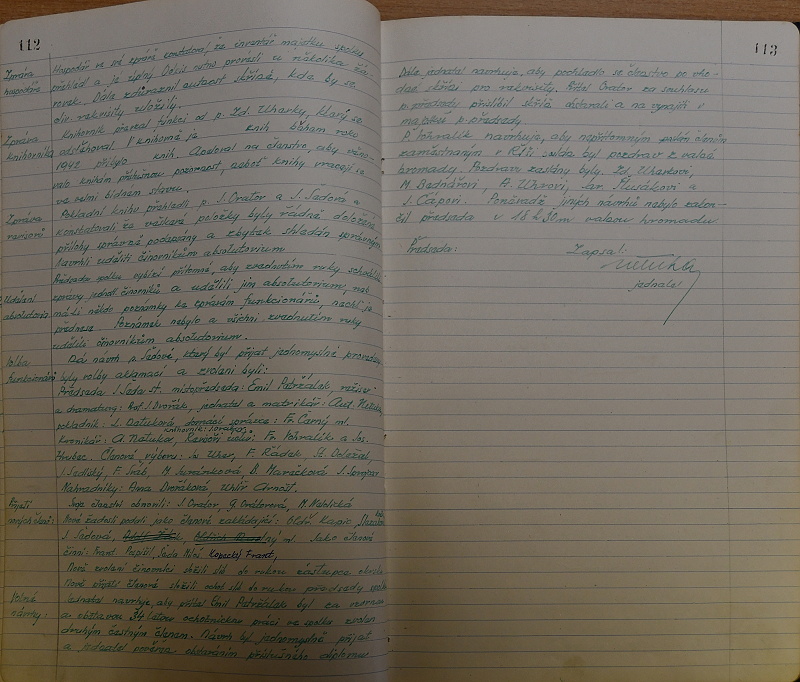 112
Zpráva
hospodáře
Hospodář ve své zprávě konstatoval, že inventář majetku spolku
přehled a je úplný. Dále nutno provésti ve několika
Dále zdůraznil nutnost skříně, kde by se
rekvisity uložily.
Zpráva
knihovníka
Knihovník převzal funkci od p. Zd. Uharky, který se
odstěhoval. V knihovně je knih během roku
1942 přibylo knih. Apeloval na členstvo, aby věno-
valo knihám příslušnou pozornost, neboť knihy vracejí se
ve velmi bídném stavu.
Zpráva
revisorů
Pokladní knihu přehlédli p. J. Orator a J. Šedová a
konstatovali že veškeré položky byly řádně doloženy
přílohy správně podepsány a zbytek shledán správným.
Navrhli uděliti činovníkům absolutorium.
Udělení
absolutoria
Předseda spolku vybízí přítomné, aby zvednutím ruky schválili
zprávy jedntl. činovníků a udělili jim absolutorium,
má-li někdo poznámky ke zprávám funkcionářů, nechť je
přednese. Poznámek nebylo a všichni zvednutím ruky
udělili činovníkům absolutorium.
Volba
funkcionářů
Na návrh p. Šedové, který byl přijat jednomyslně provedeny
byly volby aklamací a zvoleni byli:
Předseda J. Šeda st. místopředseda: Emil Petržálek, režisér
a dramaturg: Prof. J. Dvořák, jednatel a matrikář: Ant.
pokladník: L. Netuková domácí správce: Fr. Černý ml.
knihovník: J. Orator
Kronikář: A. Netuka, Revisoři účtů: Fr. Pohralík a Jos.
Hrubec. Členové výboru: Uher, F. Řádek, St. Doležal,
J. Sedlský, F. M. B. Marečková J.
Náhradníky: Anna Dvořáková, Uhlíř Arnošt.
Přijetí
nových členů:
Svoje členství obnovili: J. Orator, G. Oratorová, M.
Nově žádali podali jako členové zakládající: Oldř. Kapic
J. Šedová, ml. Jako členové
činní: Frant. Pospíšil, Šeda Miloš Kopecký Frant,
Nově zvolení činovníci složili slib do rukou zástupce okrsku
Nově přijatí členové složili slib do rukou předsedy spolku
Volné
návrhy:
Jednatel navrhuje, aby přítel Emil Petržálek byl za
a obětavou 34 letou ochotnickou práci ve spolku zvolen
druhým čestným členem. Návrh byl jednomyslně přijat
a jednatel pověřen obstaráním příslušného diplomu
113
Dále jednatel navrhuje, aby pohlédlo se členstvo po vho-
dné skříni pro rekvisity. Přítel Orator za souhlasu
p. předsedy přislíbil skříň obstarati a na
p. předsedy.
P. Pohralík navrhuje, aby nepřítomným členům
zaměstnaným v Říši zaslán byl pozdrav z valné
hromady. Pozdravy zaslány byly, Zd. Uharkovi,
M. Bednářovi, A. Uhrovi, Jar. a
J. Čapovi. Poněvadž jiných návrhů nebylo zakon-
čil předseda v 16 h. 30 m valnou hromadu.
Předseda:
Zapsal:
jednatel